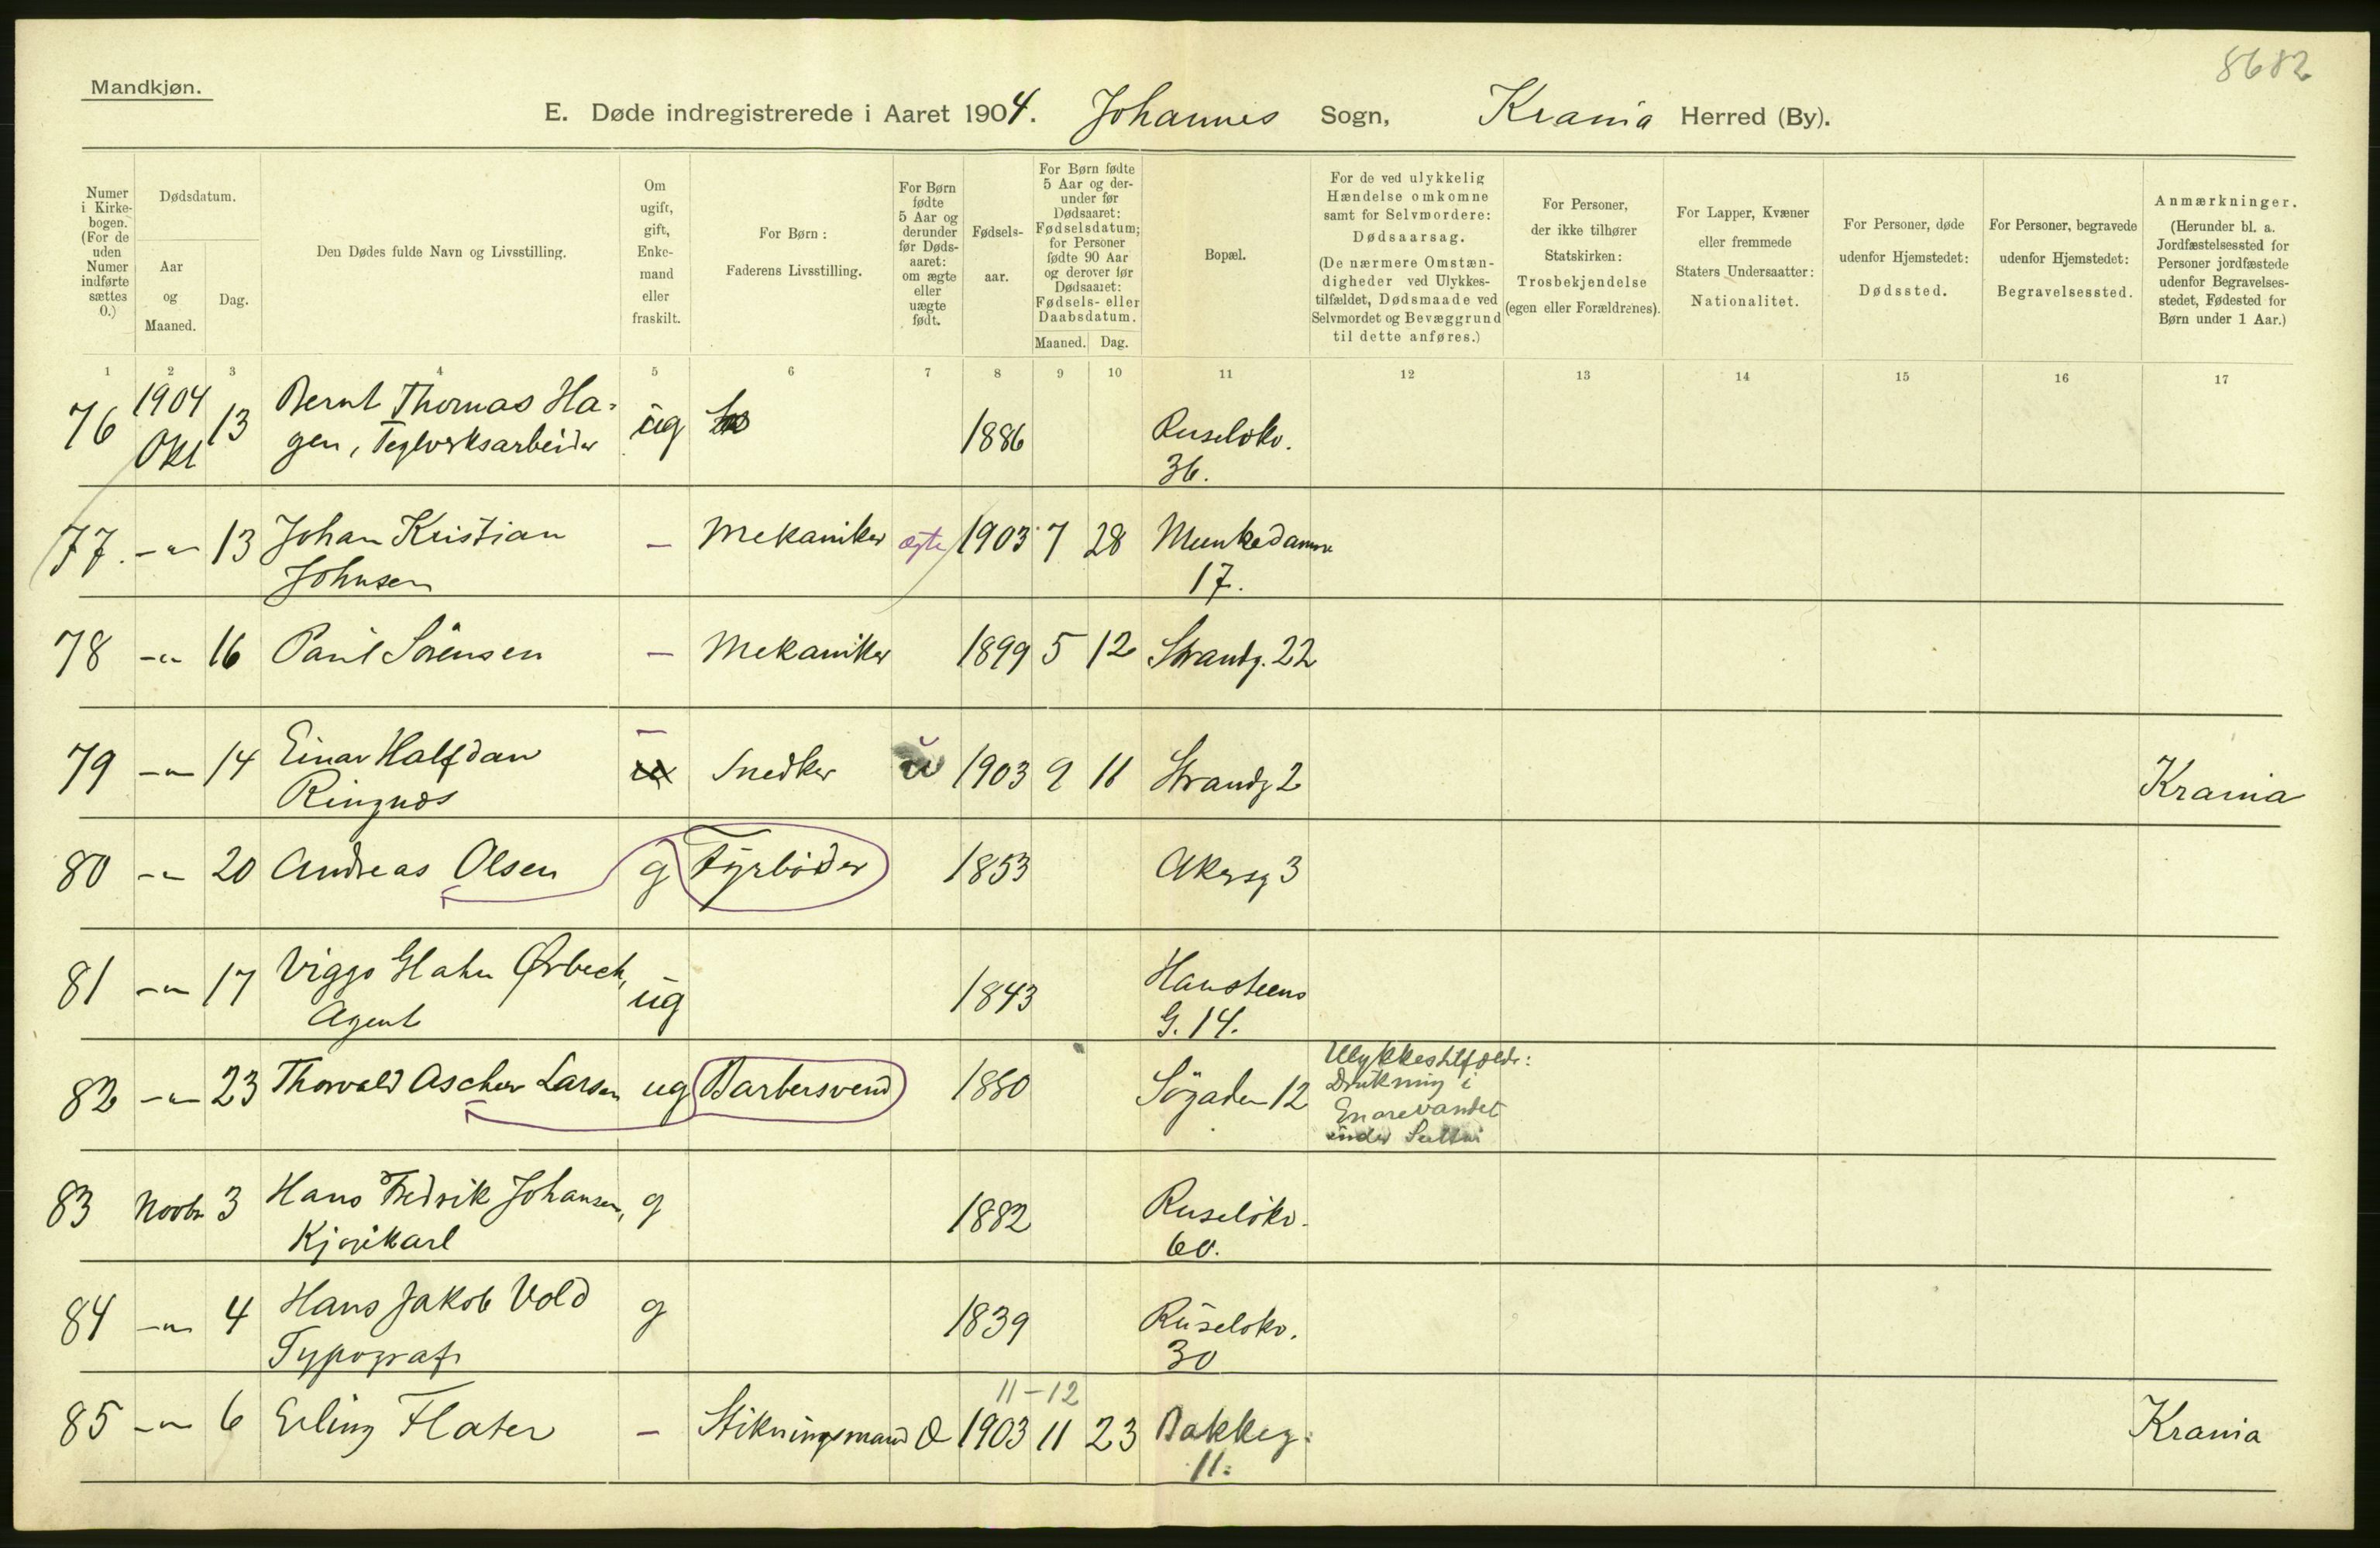 8682
Mandkjøn.
E. Døde indregistrerede i Aaret 1904. Johannes Sogn, Krania Herred (By).
Numer i Kirkebogen. (For de uden Numer indførte sættes 0.)
Dødsdatum.
Aar og Maaned.
Dag.
Den Dødes fulde Navn og Livsstilling.
Om ugift, gift, Enkemand eller fraskilt.
For Børn: Faderens Livsstilling.
For Børn fødte 5 Aar og derunder før Dødsaaret: om ægte eller uægte født.
Fødselsaar.
For Børn fødte 5 Aar og derunder før Dødsaaret: Fødselsdatum; for Personer fødte 90 Aar og derover før Dødsaaret: Fødsels- eller Daabsdatum.
Maaned. Dag.
Bopæl.
For de ved ulykkelig Hændelse omkomne samt for Selvmordere: Dødsaarsag. (De nærmere Omstændigheder ved Ulykkestilfældet, Dødsmaade ved Selvmordet og Bevæggrund til dette anføres.)
For Personer, der ikke tilhører Statskirken: Trosbekjendelse (egen eller Forældrenes).
For Lapper, Kvæner eller fremmede Staters Undersaatter: Nationalitet.
For Personer, døde udenfor Hjemstedet: Dødssted.
For Personer, begravede udenfor Hjemstedet: Begravelsessted.
Anmærkninger. (Herunder bl. a. Jordfæstelsessted for Personer jordfæstede udenfor Begravelsesstedet, Fødested for Børn under 1 Aar.)
1 2 3 4 5 6 7 8 9 10 11 12 13 14 15 16 17
76 1904 Okt 13 Bernt Thomas Hagen, Teglverksarbeider ug 1886 Ruseløkv. 36.
77. -"- 13 Johan Kristian Johnsen - Mekaniker ægte 1903 7 28 Munkedamsv 17.
78 -"- 16 Paul Sörensen - Mekaniker 1899 5 12 Strandg. 22
79 -"- 14 Einar Halfdan Ringnæs - Snedker u 1903 9 11 Strandg 2 Krania
80 -"- 20 Andreas Olsen g Fyrböder 1853 Akersg 3
81 -"- 17 Viggo Hahn Ørbeck, Agent ug 1843 Hansteens G. 14.
82 -"- 23 Thorvald Ascher Larsen ug Barbersvend 1880 Sögaden 12 Ulykkestilfælde: Drukning i Enarevandet under
83 Novbr 3 Hans Fredrik Johansen, Kjörekarl g 1882 Ruselökv. 60.
84 -"- 4 Hans Jakob Vold Typograf g 1839 Ruselökv. 30
11-12
85 -"- 6 Erling Flater - Stikningsmand 1903 11 23 Bakkeg: 11: Krania